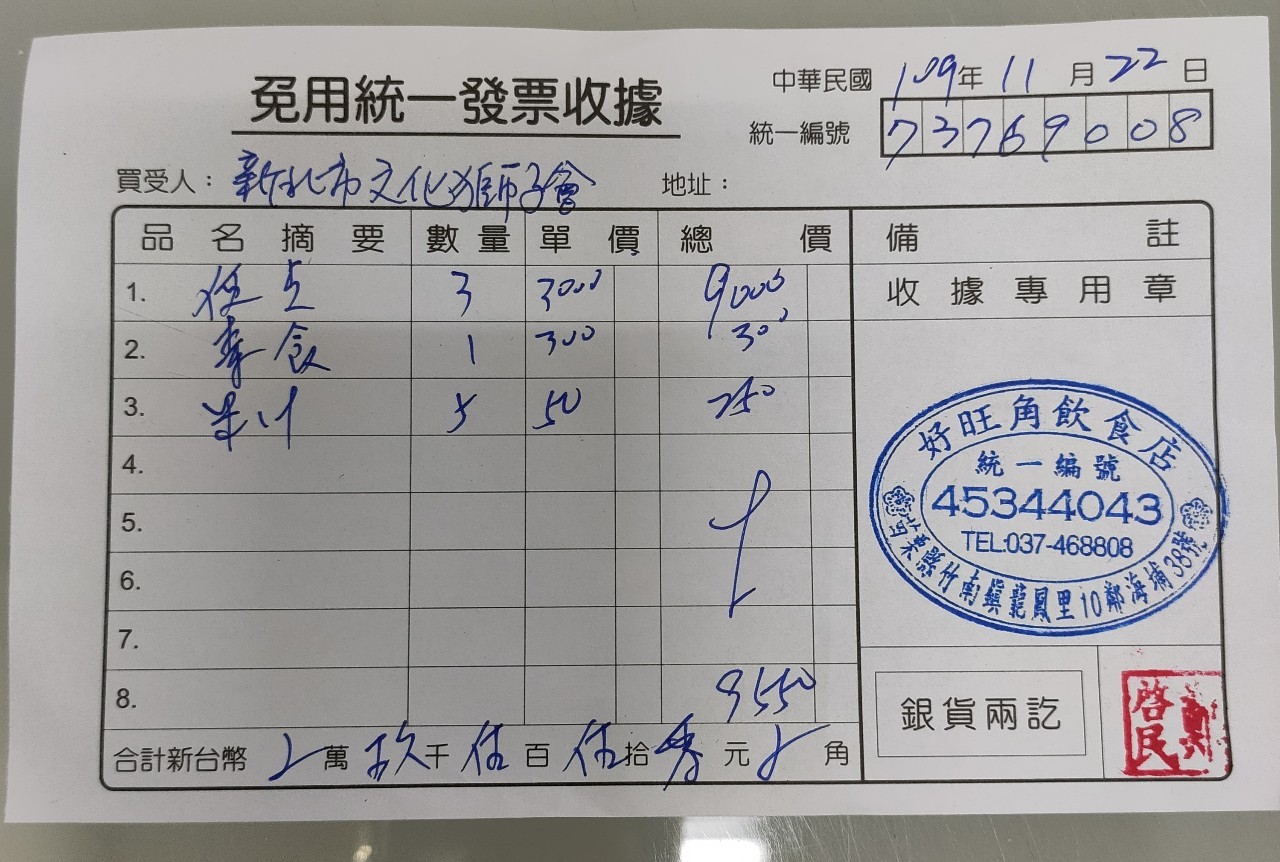 免用統一發票收據
中華民國 109年 11 月 22 日
統一編號 73769008
買受人：新北市文化獅子會 地址：
品名摘要 數量 單價 總價 備註
收據專用章
1. 3 3000 9000
2. 素食 1 300 300
3. 果汁 5 50 250
4.
5.
6.
7.
8. 9550
合計新台幣 萬 玖千 伍百 伍拾 零元 角
好旺角飲食店
統一編號
45344043
TEL:037-468808
苗栗縣竹南鎮龍鳳里10鄰海埔38號
銀貨兩訖
啓民